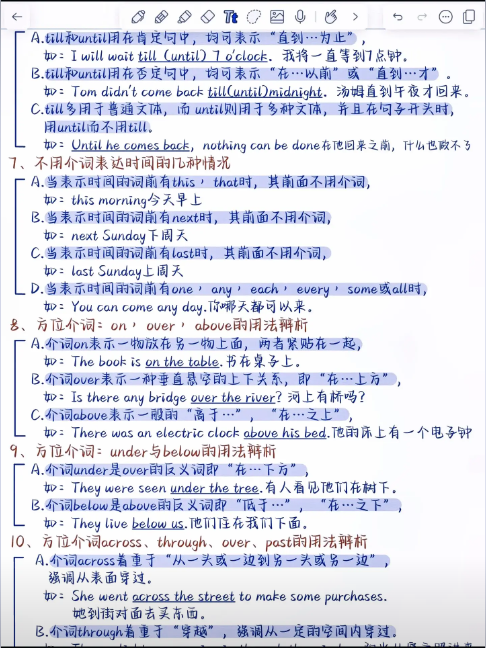 A.till和until用在肯定句中，均可表示“直到…为止”，
如：I will wait till (until) 7 o'clock. 我将一直等到7点钟。
B.till和until用在否定句中，均可表示“在…以前”或“直到…才”。
如：Tom didn't come back till(until)midnight. 汤姆直到午夜才回来。
C.till多用于普通文体，而 until则用于多种文体，并且在句子开头时，
用until而不用till.
如：Until he comes back, nothing can be done在他回来之前，什么也做不
7、不用介词表达时间的几种情况
A.当表示时间的词前有this，that时，其前面不用介词，
如：this morning今天早上
B.当表示时间的词前有next时，其前面不用介词，
如：next Sunday下周天
C.当表示时间的词前有last时，其前面不用介词，
如：last Sunday上周天
D.当表示时间的词前有one，any，each，every，some或all时，
如：You can come any day.你哪天都可以来。
8、方位介词：on，over，above的用法辨析
A.介词on表示一物放在另一物上面，两者紧贴在一起，
如：The book is on the table.书在桌子上。
B.介词over表示一种垂直悬空的上下关系，即“在…上方”，
如：Is there any bridge over the river? 河上有桥吗？
C.介词above表示一般的“高于…”，“在…之上”，
如：There was an electric clock above his bed.他的床上有一个电子钟
9、方位介词：under与below的用法辨析
A.介词under是over的反义词即“在…下方”，
如：They were seen under the tree.有人看见他们在树下。
B.介词below是above的反义词即“低于…”，“在…之下”，
如：They live below us.他们住在我们下面。
10、方位介词across、through、over、past的用法辨析
A.介词across着重于“从一头或一边到另一头或另一边”，
强调从表面穿过。
如：She went across the street to make some purchases.
她到街对面去买东西。
B.介词through着重于“穿越”，强调从一定的空间内穿过。